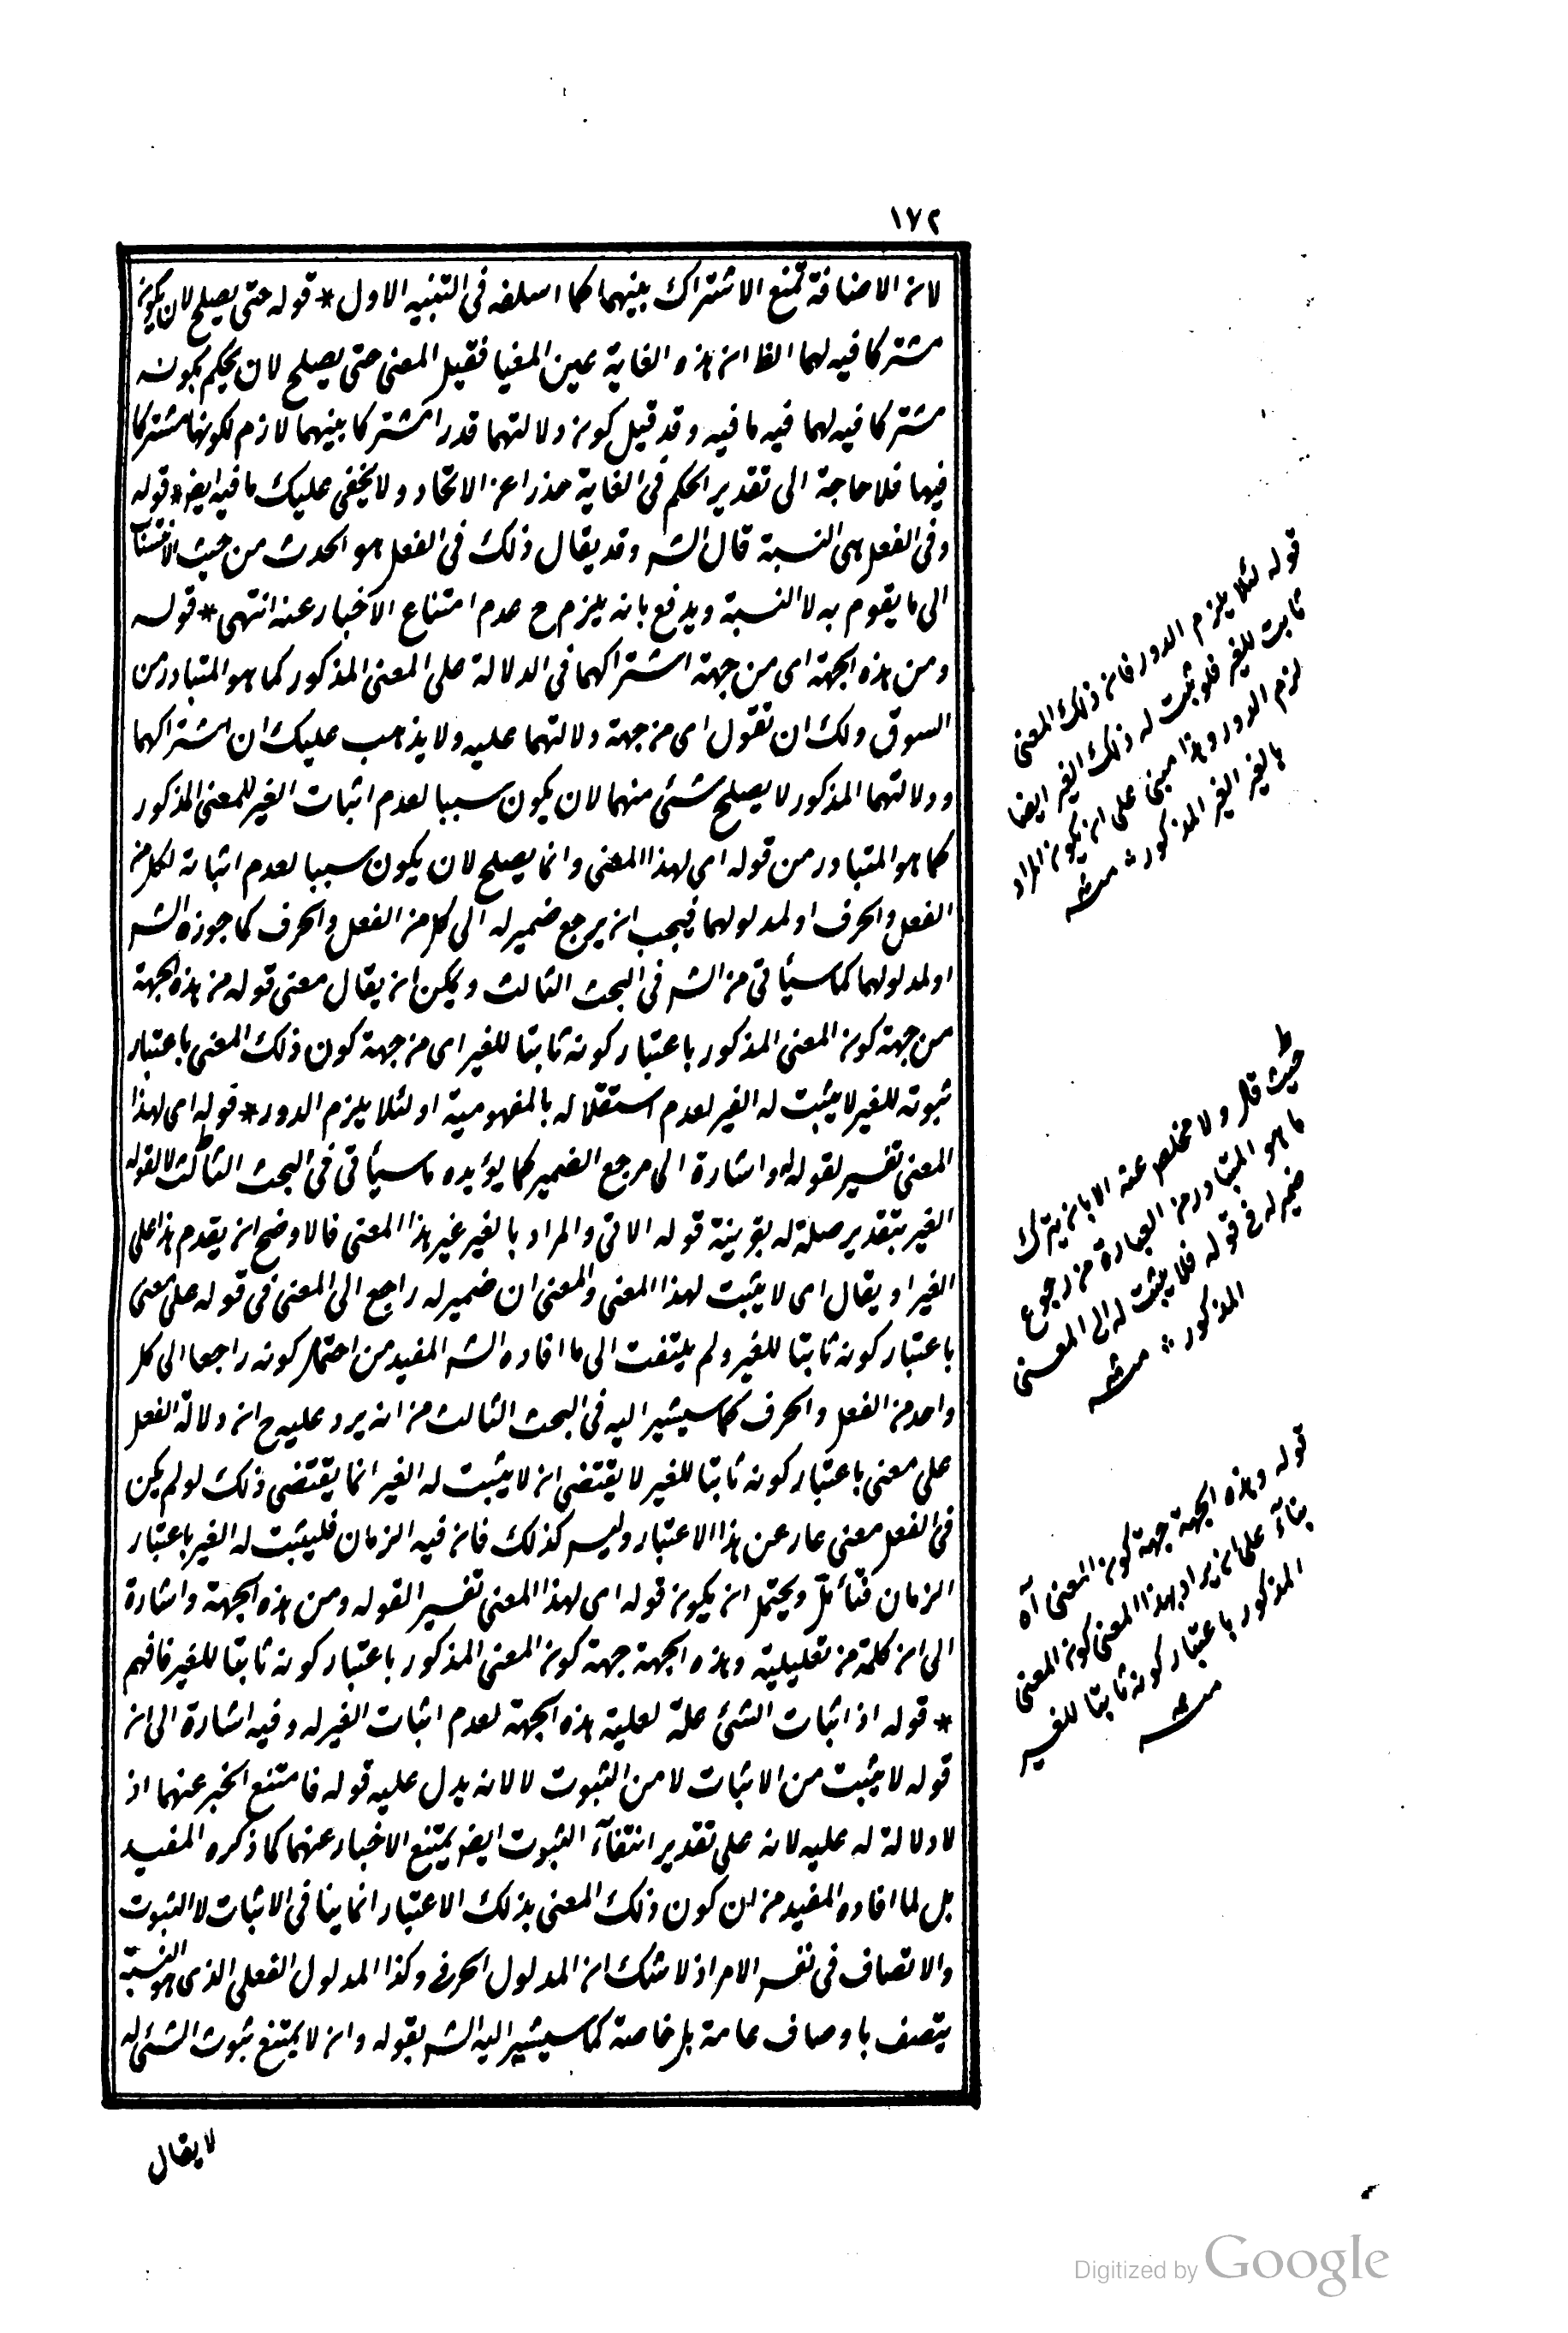 ١٧٢
لان الاضافة تمنع الاشتراك بينهما كما اسلفه فى التنبيه الاول * قوله حتى يصلح لان يكون
مشتركا فيه لهما الظ ان هذه الغاية عين المغيا فقيل المعنى حتى يصلح لان يحكم بكونه
مشتركا فيه لهما فيه ما فيه وقد قيل كون دلالتهما قدرا مشتركا بينهما لازم لكونها مشتركا
فيها فلا حاجة الى تقدير الحكم فى الغاية حذرا عن الاتحاد ولا يخفى عليك ما فيه ايض * قوله
وفى الفعل هى النسبة قال الشه وقد يقال ذلك فى الفعل هو الحدث من حيث الانتساب
الى ما يقوم به لا النسبة ويدفع بانه يلزم ح عدم امتناع الاخبار عنه انتهى * قوله
ومن هذه الجهة اى من جهة اشتراكهما فى الدلالة على المعنى المذكور كما هو المتبادر من
السوق ولك ان تقول اى من جهة دلالتهما عليه ولا يذهب عليك ان اشتراكهما
ودلالتهما المذكور لا يصلح شئ منهما لان يكون سببا لعدم اثبات الغير للمعنى المذكور
كما هو المتبادر من قوله اى لهذا المعنى وانما يصلح لان يكون سببا لعدم اثباته لكل من
الفعل والحرف او لمدلولهما فيجب ان يرجع ضمير له الى كل من الفعل والحرف كما جوزه الشه
او لمدلولهما كما سيأتى من الشه فى البحث الثالث ويمكن ان يقال معنى قوله من هذه الجهة
من جهة كون المعنى المذكور باعتبار كونه ثابتا للغير اى من جهة كون ذلك المعنى باعتبار
ثبوته للغير لا يثبت له الغير لعدم استقلاله بالمفهومية او لئلا يلزم الدور * قوله اى لهذا
المعنى تفسير لقوله له واشارة الى مرجع الضمير كما يؤيده ما سيأتى فى البحث الثالث لا لقوله
الغير بتقدير صلة له بقرينة قوله الاتى والمراد بالغير غير هذا المعنى فالاوضح ان يقدم هذا على
الغير او يقال اى لا يثبت لهذا المعنى والمعنى ان ضمير له راجع الى المعنى فى قوله على معنى
باعتبار كونه ثابتا للغير ولم يلتفت الى ما افاده الشه المفيد من احتمال كونه راجعا الى كل
واحد من الفعل والحرف كما سيشير اليه فى البحث الثالث من انه يرد عليه ح ان دلالة الفعل
على معنى باعتبار كونه ثابتا للغير لا يقتضى ان لا يثبت له الغير انما يقتضى ذلك لو لم يكن
فى الفعل معنى عار عن هذا الاعتبار وليس كذلك فان فيه الزمان فليثبت له الغير باعتبار
الزمان فتأمل ويحتمل ان يكون قوله اى لهذا المعنى تفسيرا لقوله ومن هذه الجهة واشارة
الى ان كلمة من تعليلية وهذه الجهة جهة كون المعنى المذكور باعتبار كونه ثابتا للغير فافهم
* قوله اذ اثبات الشئ علة لعلية هذه الجهة لعدم اثبات الغير له وفيه اشارة الى ان
قوله لا يثبت من الاثبات لا من الثبوت لا لانه يدل عليه قوله فامتنع الخبر عنهما اذ
لا دلالة له عليه لانه على تقدير انتفآء الثبوت ايض يمتنع الاخبار عنهما كما ذكره المفيد
بل لما افاده المفيد من ان كون ذلك المعنى بذلك الاعتبار انما ينافى الاثبات لا الثبوت
والاتصاف فى نفس الامر اذ لا شك ان المدلول الحرفى وكذا المدلول الفعلى الذى هو النسبة
يتصف باوصاف عامة بل خاصة كما سيشير اليه الشه بقوله وان لا يمتنع ثبوت الشئ له
لا يقال
قوله لئلا يلزم الدور فان ذلك المعنى
ثابت للغير فلو ثبت له ذلك الغير ايضا
لزم الدور وهذا مبنى على ان يكون المراد
بالغير الغير المذكور منه
حيث قال ولا مخلص عنه الا بان يترك
ما هو المتبادر من العبارة من رجوع
ضمير له فى قوله فلا يثبت له الى المعنى
المذكور منه
قوله وهذه الجهة جهة كون المعنى آه
بنآء على ان يراد بهذا المعنى كون المعنى
المذكور باعتبار كونه ثابتا للغير
منه
Digitized by Google